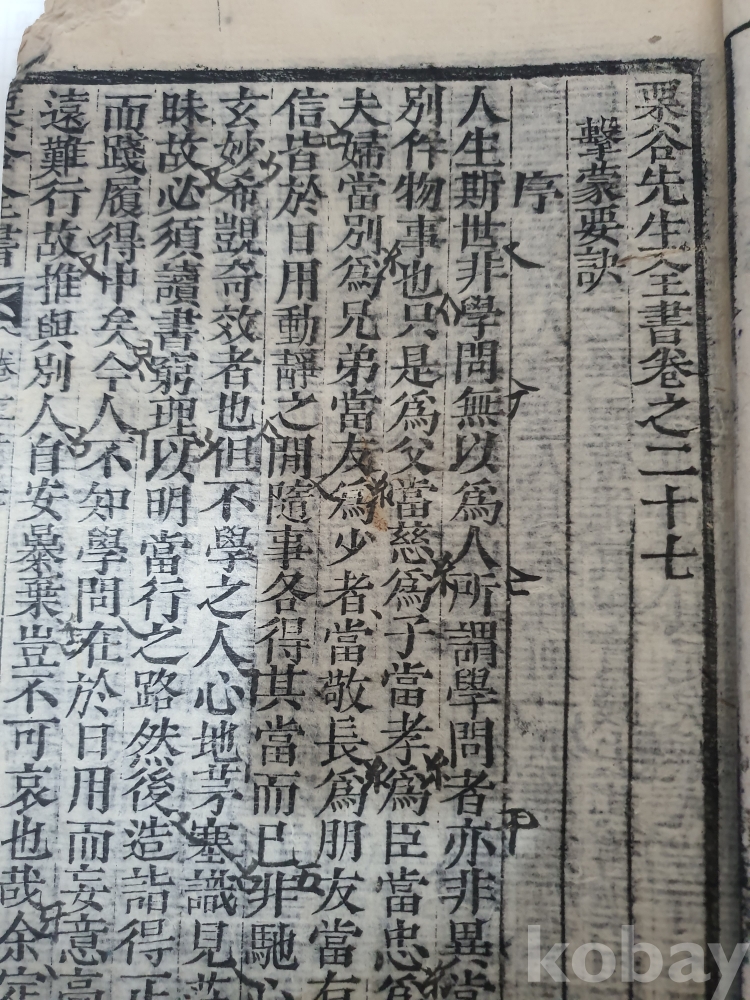 栗谷先生全書卷之二十七
擊蒙要訣
序
人生斯世非學問無以爲人所謂學問者亦非異常
別件物事也只是爲父當慈爲子當孝爲臣當忠爲
夫婦當別爲兄弟當友爲少者當敬長爲朋友當有
信皆於日用動靜之閒隨事各得其當而已非馳心
玄妙希覬奇效者也但不學之人心地茅塞識見茫
昧故必須讀書窮理以明當行之路然後造詣得正
而踐履得中矣今人不知學問在於日用而妄意高
遠難行故推與別人自安暴棄豈不可哀也哉余定
kobay